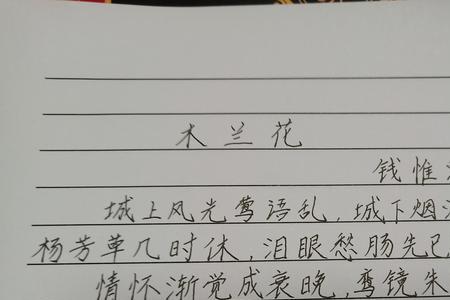 木兰花
钱惟
城上风光莺语乱,城下烟
杨芳草几时休,泪眼愁肠先已
情怀渐觉成衰晚,鸾镜朱